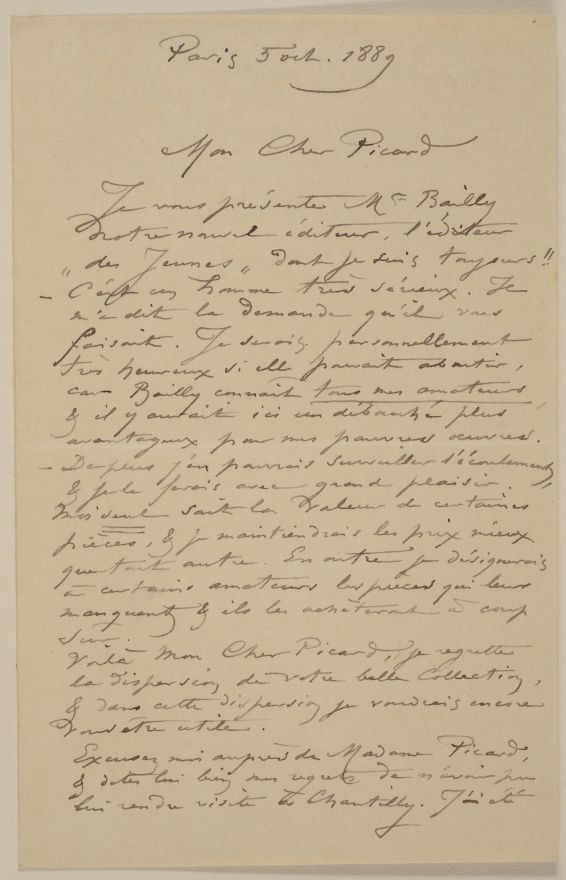 Paris 5 oct. 1889
Mon Cher Picard
Je vous présente Mr Bailly
notre nouvel éditeur, l'éditeur
"des Jeunes" dont je suis toujours!!
- C'est un homme très sérieux. Il
m'a dit la demande qu'il vous
faisait. Je serais personnellement
très heureux si elle pouvait aboutir,
car Bailly connaît tous mes amateurs,
& il y aurait ici un débouché plus
avantageux pour mes pauvres œuvres.
- De plus j'en pourrais surveiller l'écoulement,
& je le ferais avec grand plaisir.
Moi seul sait la valeur de certaines
pièces, & je maintiendrais les prix mieux
que tout autre. En outre je désignerais
à certains amateurs les pièces qui leur
manquent, & ils les achèteront à coup
sûr.
Voilà Mon Cher Picard, je regrette
la dispersion de votre belle Collection,
& dans cette dispersion je voudrais encore
vous être utile.
Excusez moi auprès de Madame Picard,
& dites lui bien mes regrets de n'avoir pu
lui rendre visite à Chantilly. J'ai été